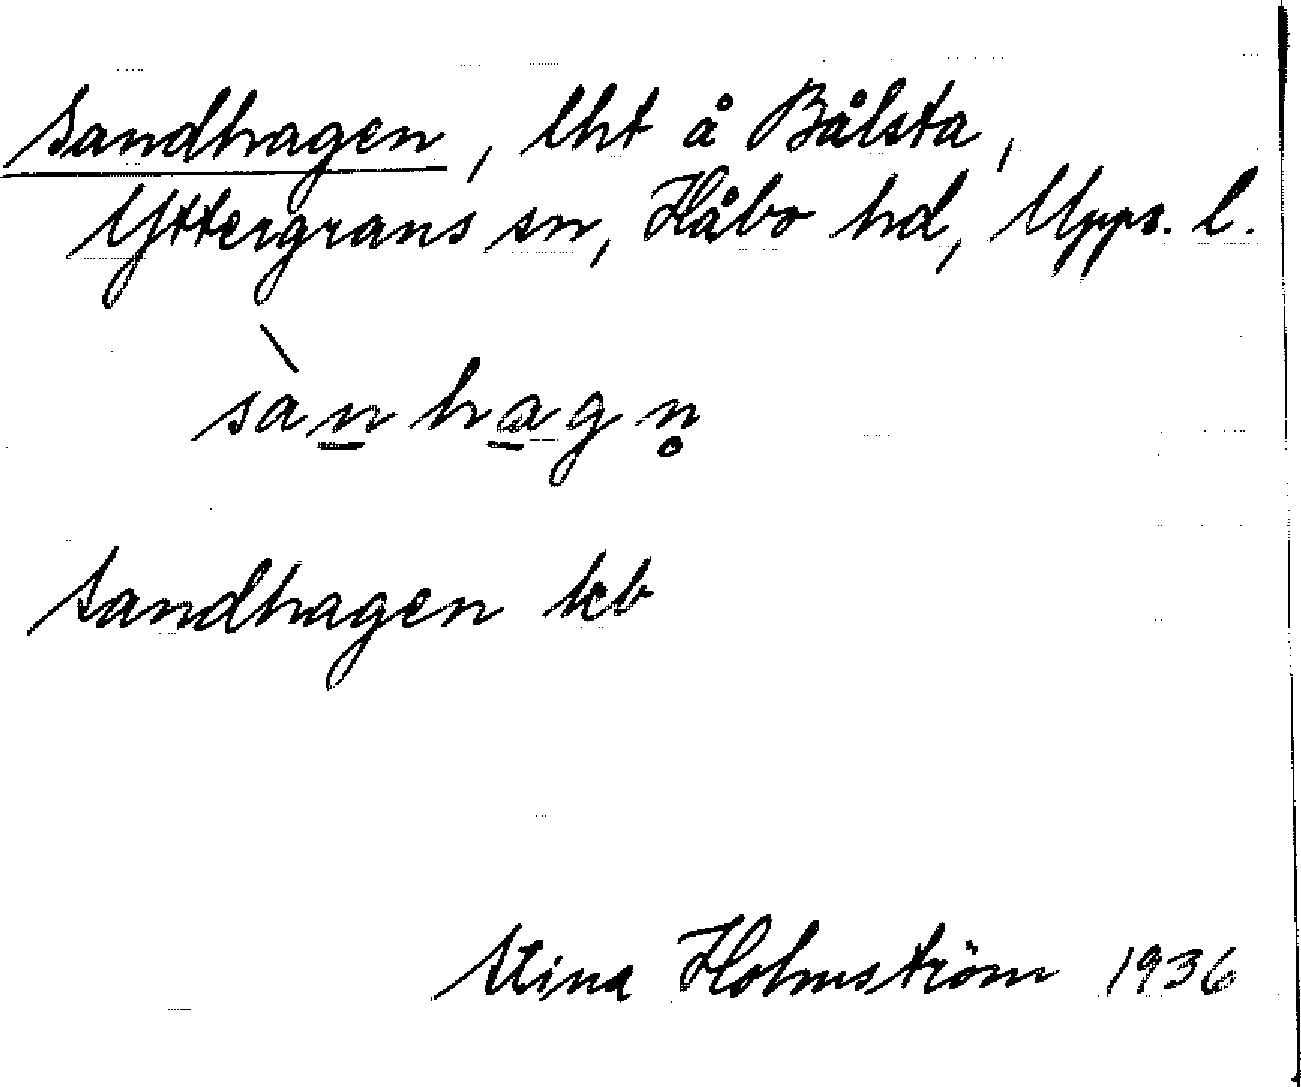 Sandhagen, lht å Bålsta,
Yttergrans sn, Håbo hd, Upps. l.
sàn̲ha̲gn̥
Sandhagen kb
Stina Holmström 1936